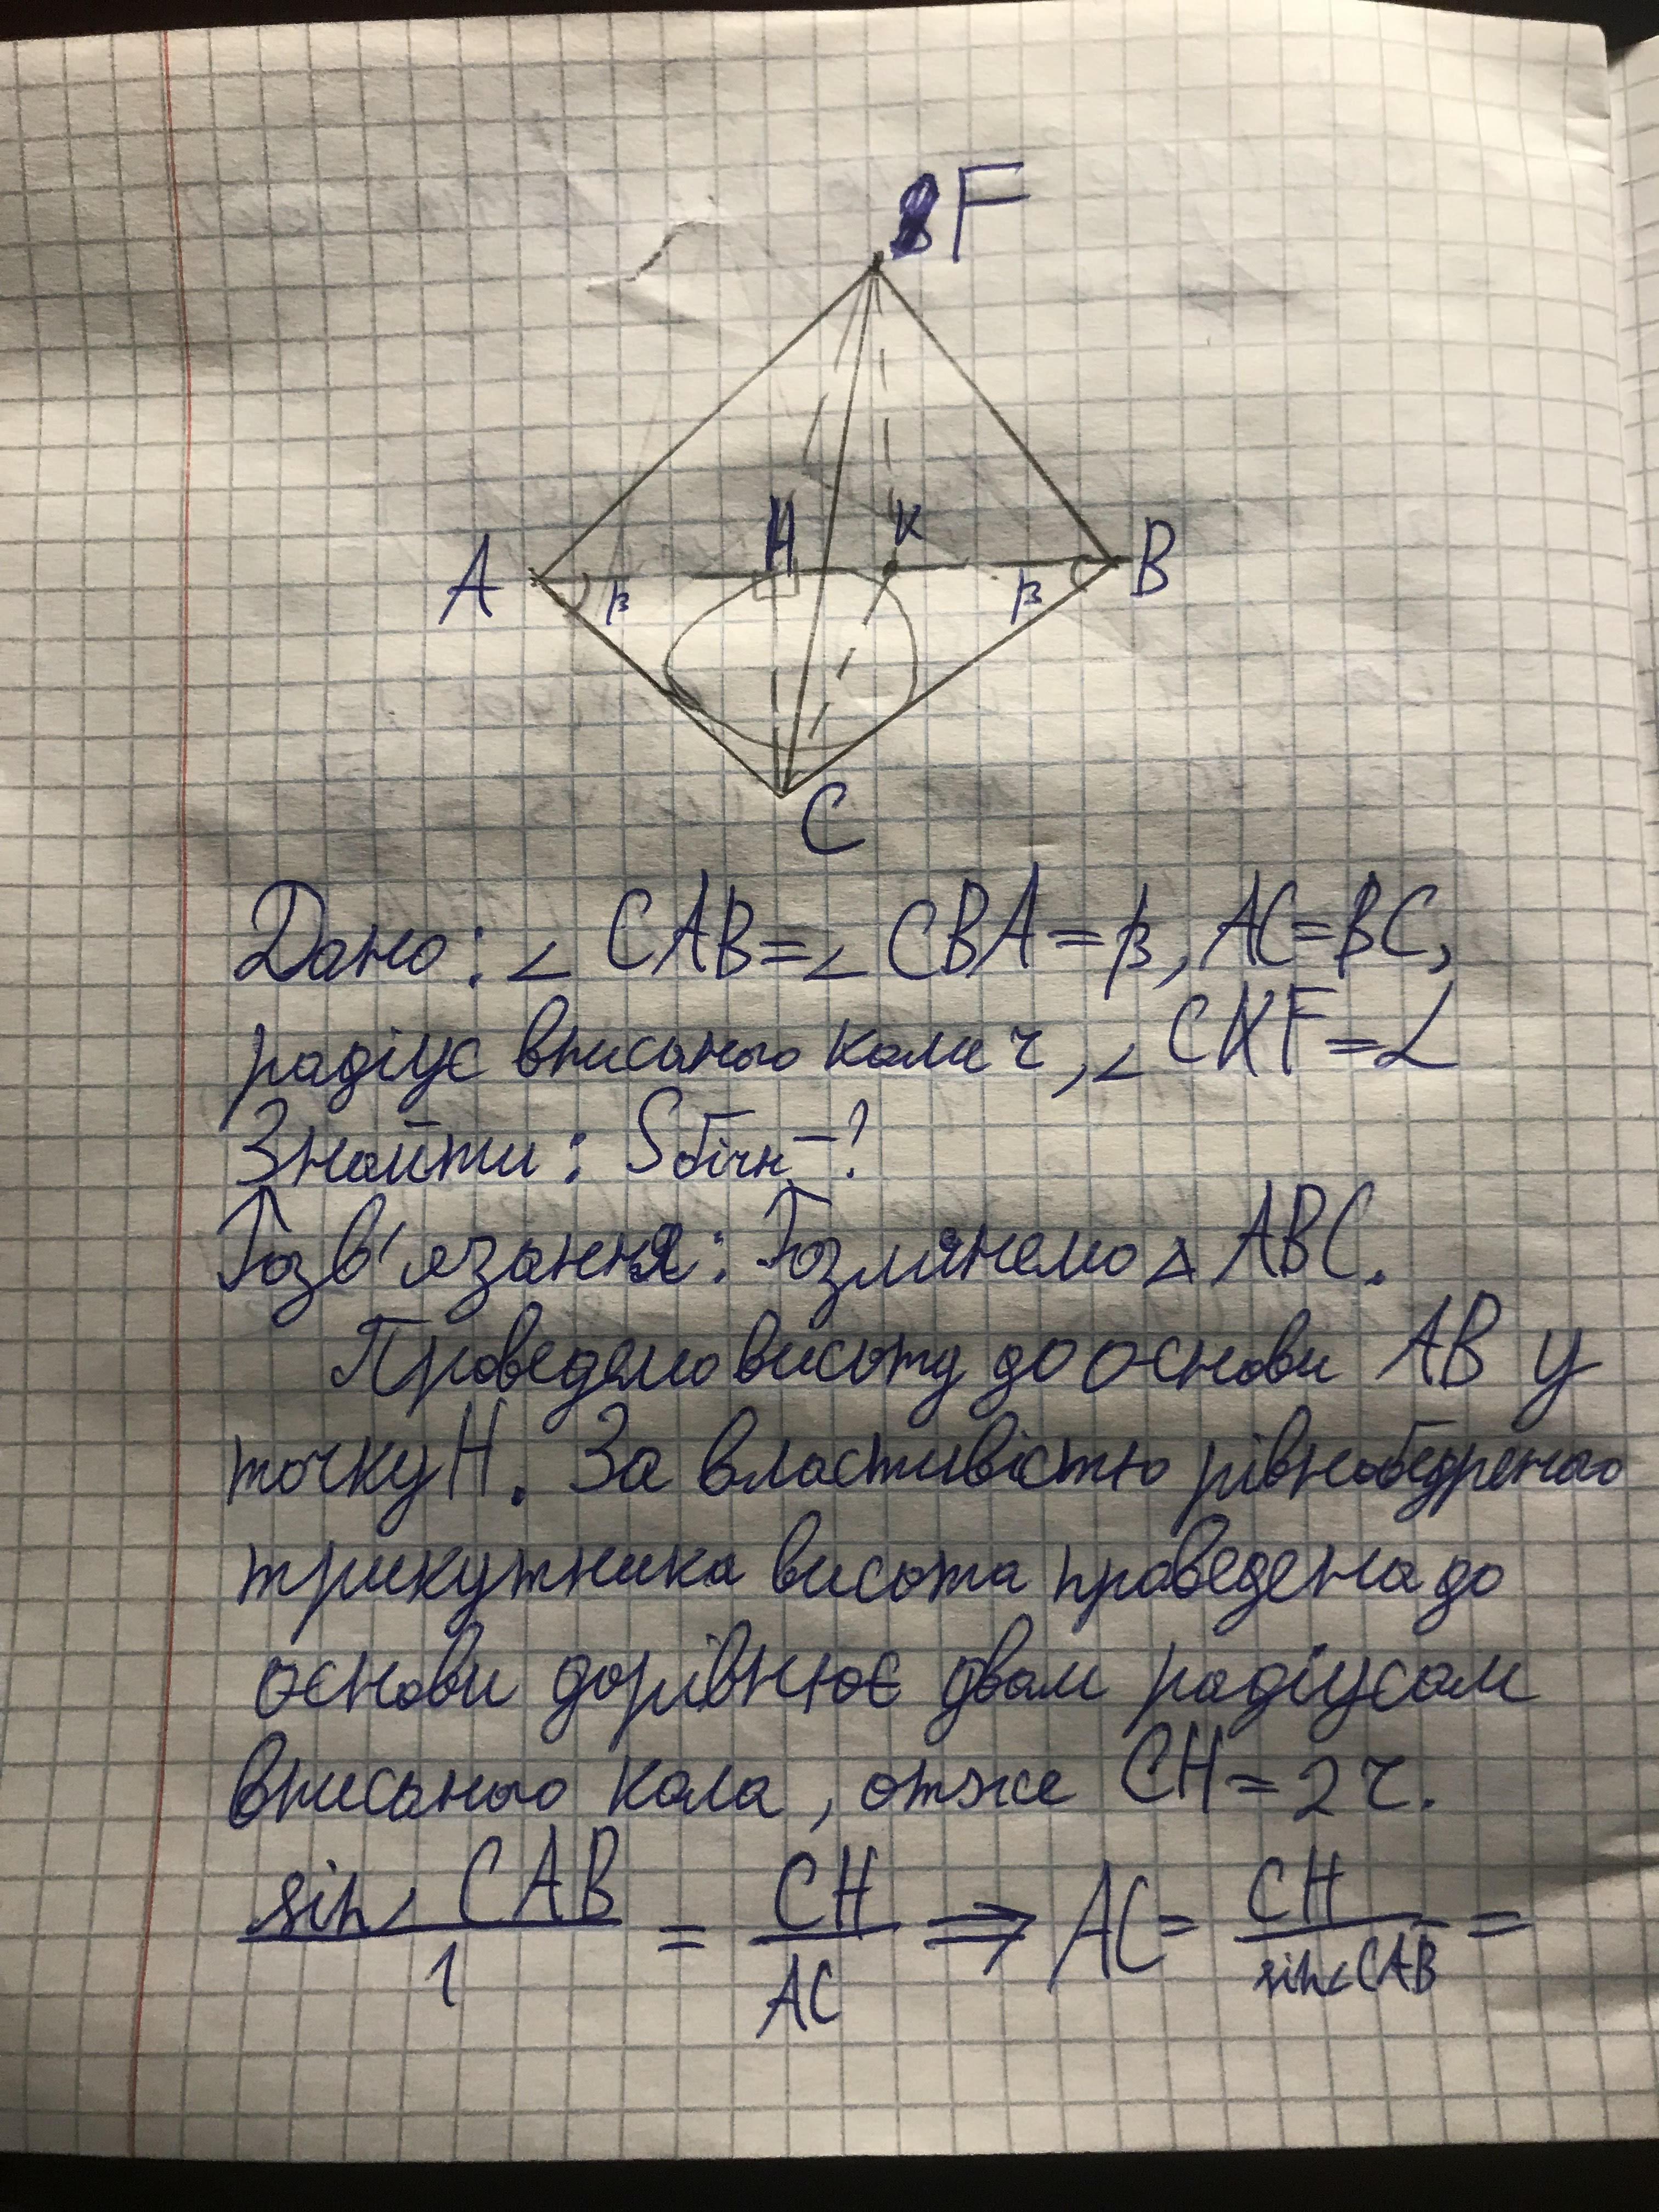 F
H
K
A
B
β
β
C
Дано: ∠ CAB=∠ CBA=β, AC=BC,
радіус вписаного кола r, ∠ CKF=α
Знайти: Sбічн-?
Розв'язання: Розглянемо △ ABC.
Проведемо висоту до основи AB у
точку H. За властивістю рівнобедреного
трикутника висота проведена до
основи дорівнює двом радіусам
вписаного кола, отже CH=2r.
sin∠ CAB/1 = CH/AC ⇒ AC= CH/sin∠CAB =